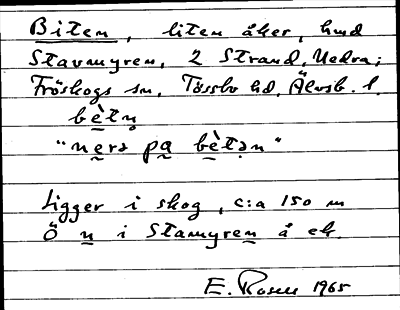 Biten, liten åker, hmd
Stavmyren, 2 Strand, Nedra;
Fröskogs sn, Tössbo hd, Älvsb. l.
bètn̥
"nerə pa bètən"
Ligger i skog, c:a 150 m
Ö n i Stamyren å ek.
E. Rosen 1965